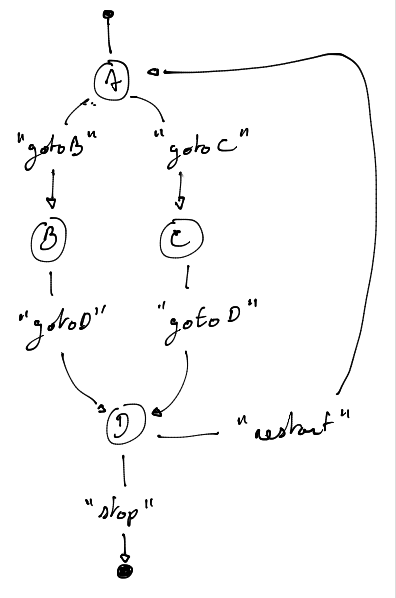 A
"gotoB" "gotoC"
B C
"gotoD" "gotoD"
D
"restart"
"stop"